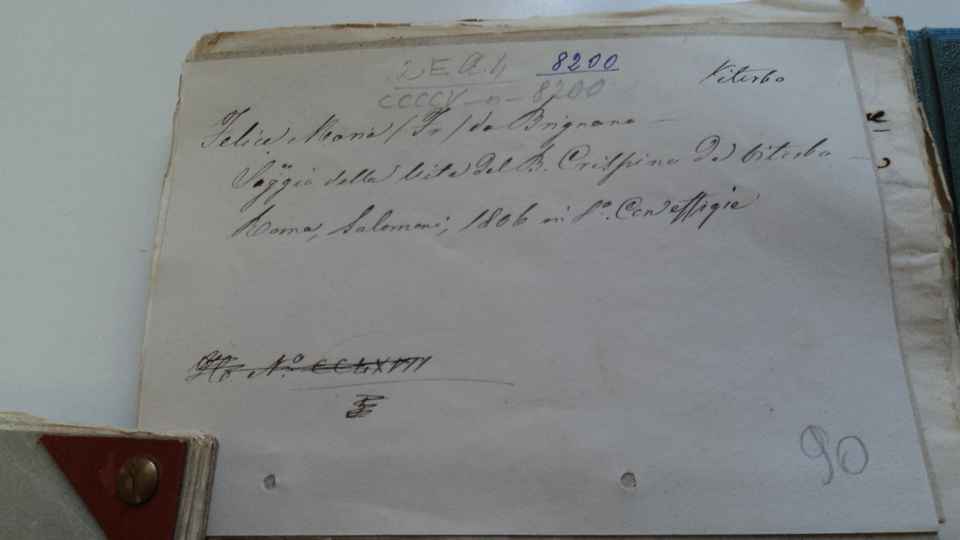 2 E Q. 4 8200 Viterbo
CCCCV - n - 8200
Felice Maria (Fr) da Brignano
Saggio della Vita del B. Crispino da Viterbo
Roma, Salomoni, 1806 in 8°. Con effigie
N.° CCLXVIII
90